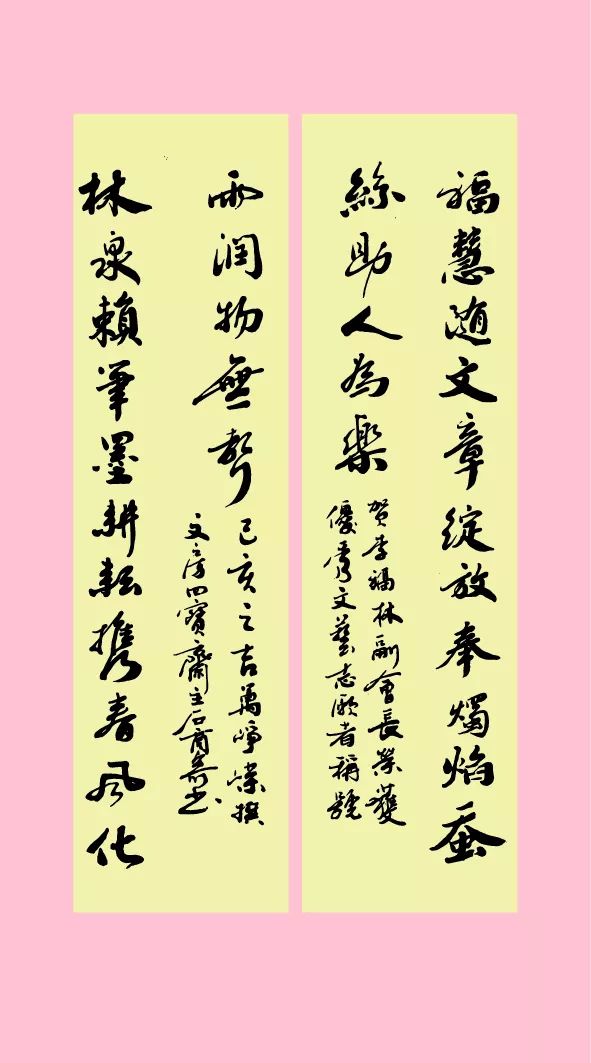 福慧随文章綻放奉燭焰蚕
絲助人為樂
贺李福林副會長榮獲
優秀文藝志願者稱號
林泉賴筆墨耕耘携春風化
雨潤物無聲
己亥之吉萬崢嶸撰
文房四寶齋主石商書